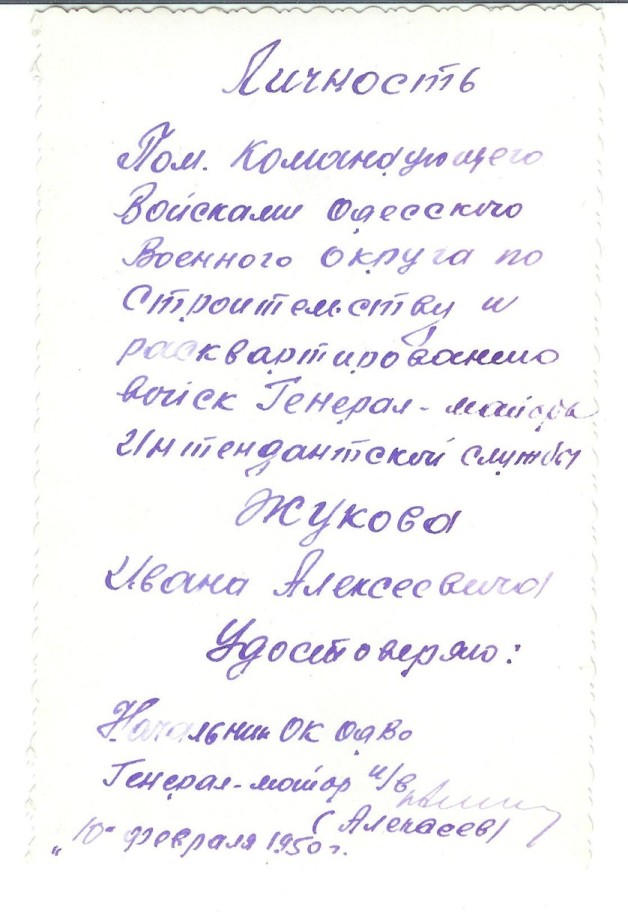 Личность
Пом. Командующего
Войсками Одесского
Военного округа по
Строительству и
расквартированию
войск Генерал-майора
Интендантской службы
Жукова
Ивана Алексеевича
Удостоверяю:
Начальник ОК ОдВо
Генерал-майор и/в
„10" февраля 1950 г.